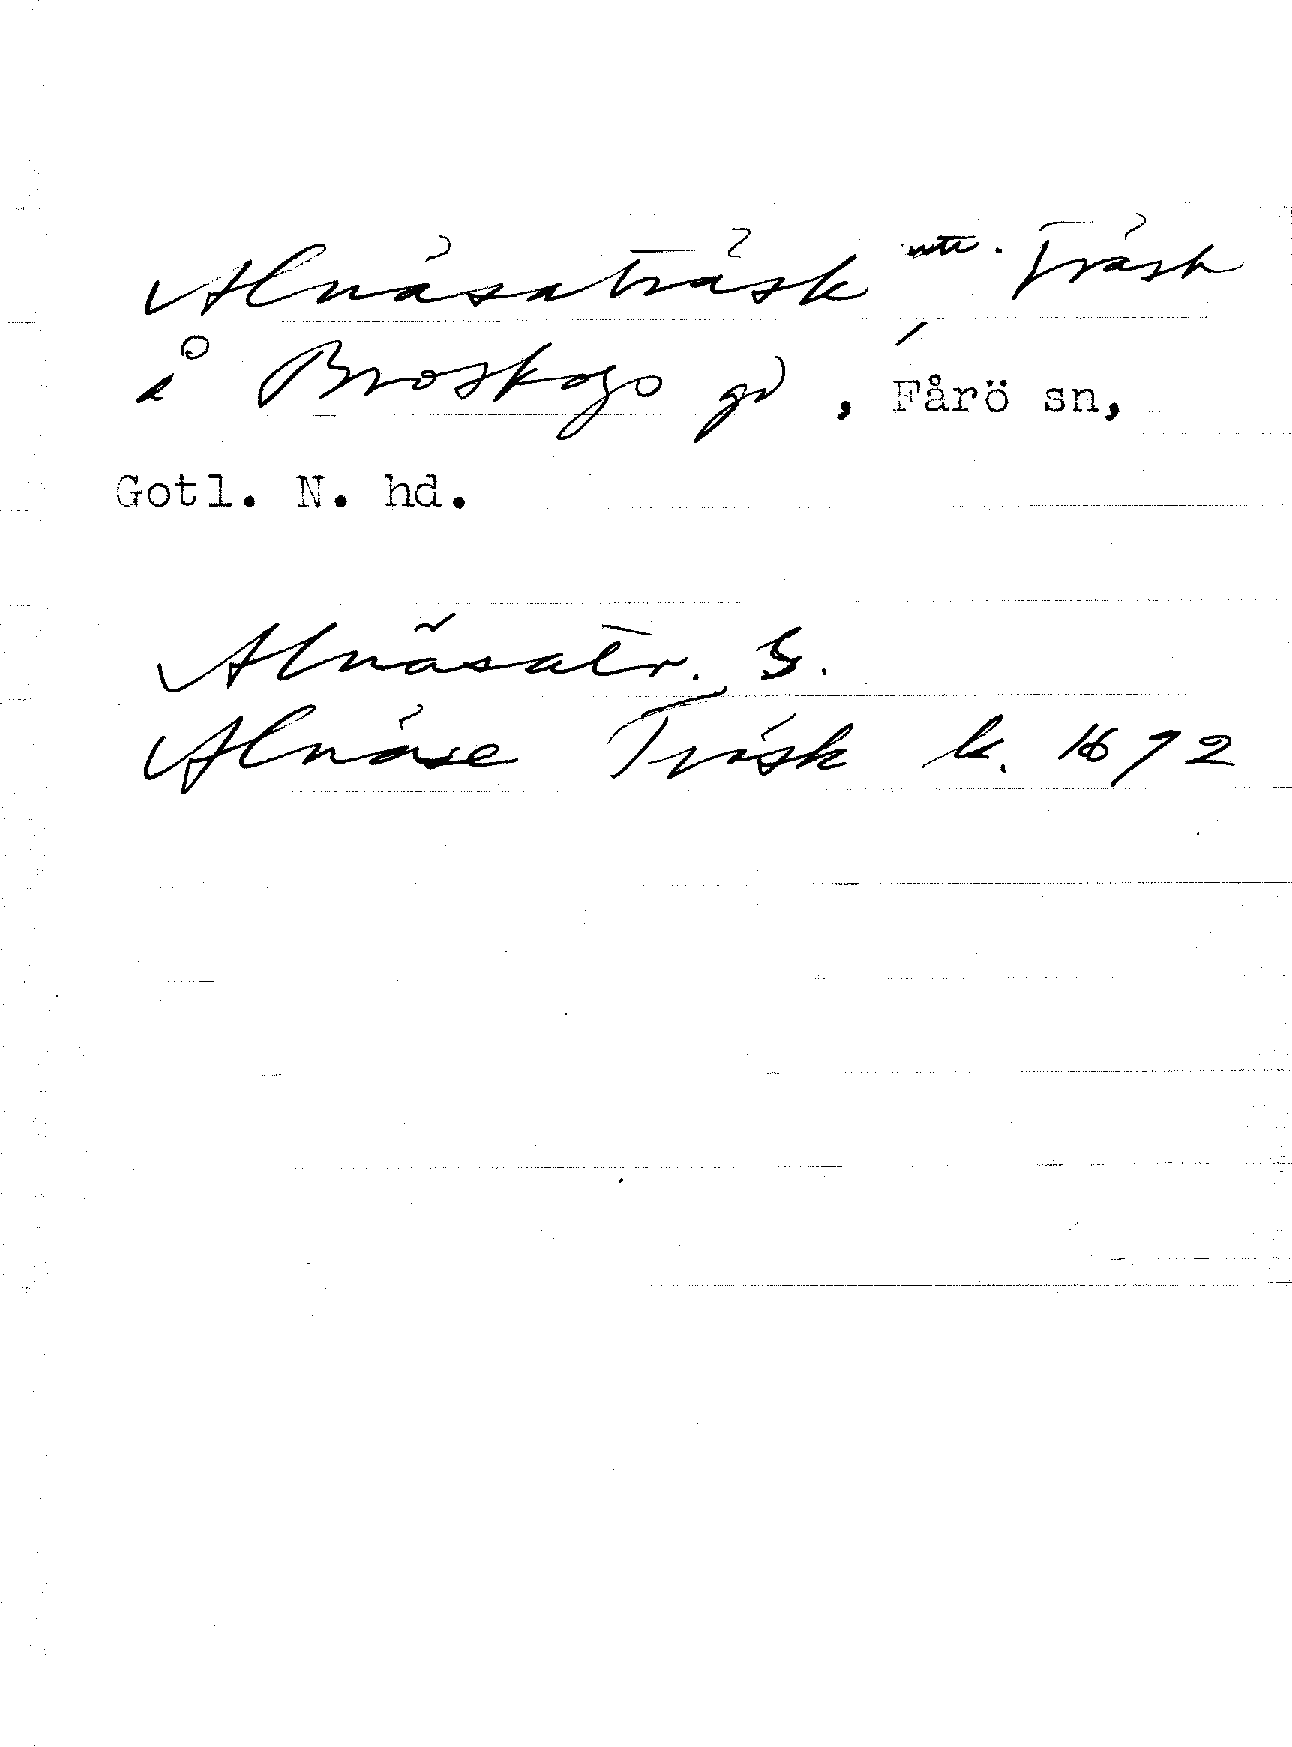 Alnäsaträsk utt. Träsk
å Broskogs gd, Fårö sn,
Gotl. N. hd.
Alnäsatr. G.
Alnäse Träsk k. 1692